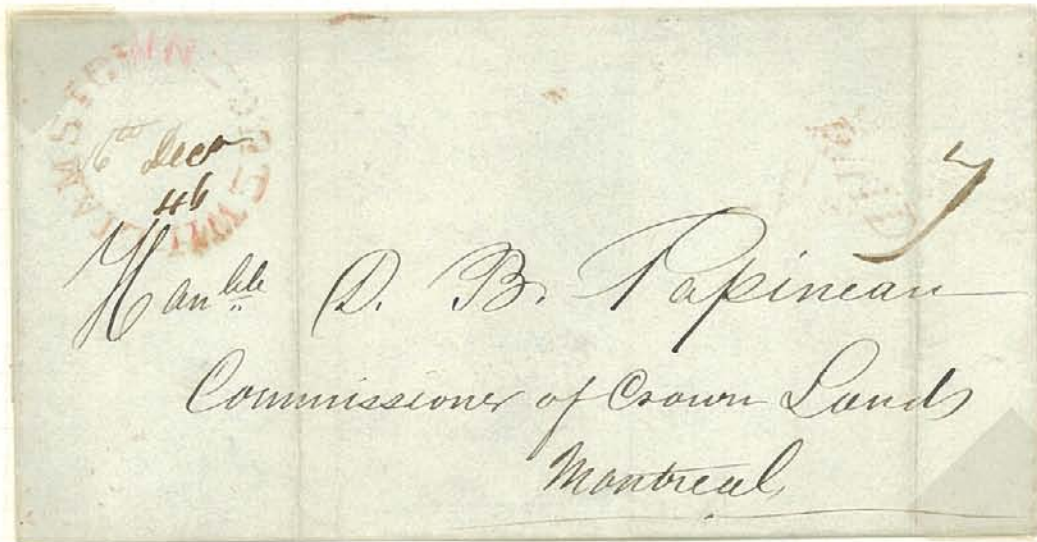 6th Decr
46
PAID
7
Honble D. B. Papineau
Commissioner of Crown Lands
Montreal